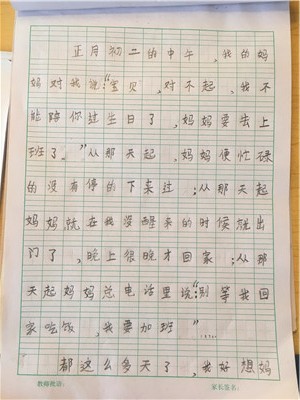 正月初二的中午，我的妈
妈对我说：“宝贝，对不起，我不
能陪你过生日了，妈妈要去上
班了。”从那天起，妈妈便忙碌
的没有停的下来过；从那天起
妈妈就在我没醒来的时候就出
门了，晚上很晚才回家；从那
天起妈妈总电话里说“别等我回
家吃饭，我要加班”……
都这么多天了，我好想妈
教师批语： 家长签名：